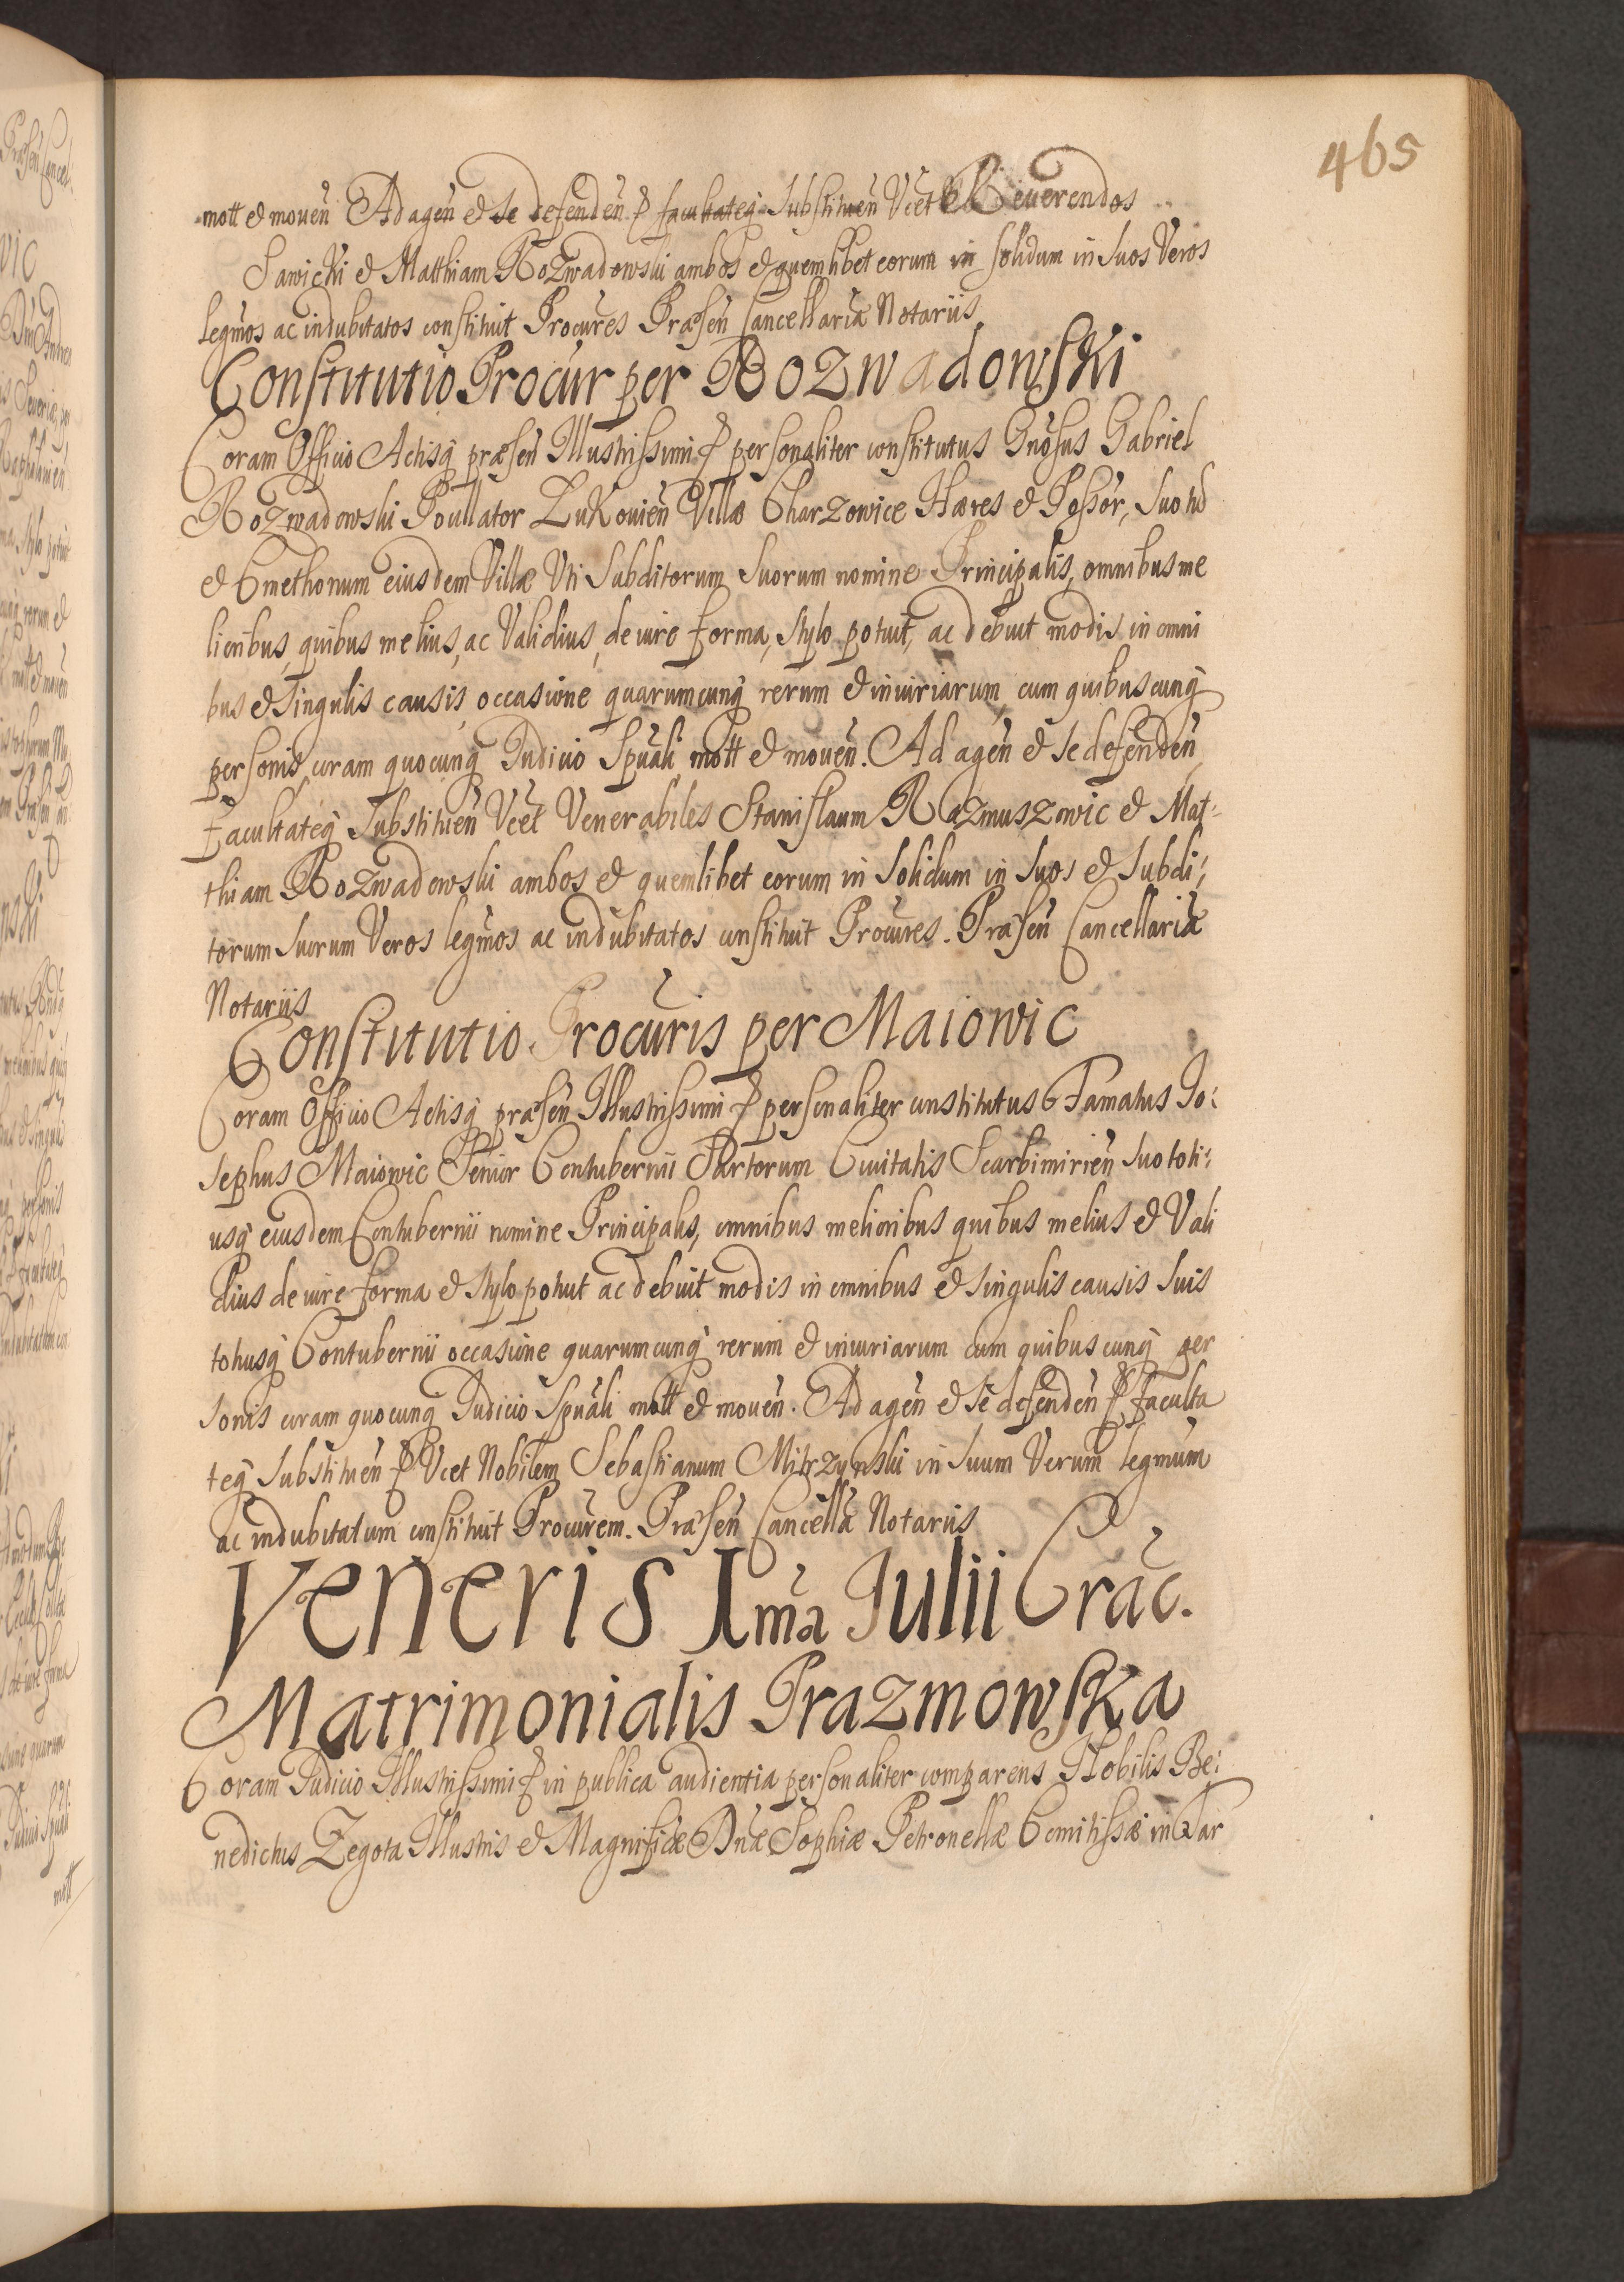 465
mott & mouen Ad agen & se defenden & facultateq Substituen Vcet Reuerendos
Sawicki & Matthiam Rozwadowski ambos & quemlibet eorum in solidum in suos Veros
legmos ac indubitatos constituit Procures Præsen Cancellaria Notariis
Constitutio Procur per Rozwadowski
Coram Officio Actisq præsen Illustrissimi & personaliter constitutus Gnosus Gabriel
Rozwadowski Poullator Lukouien Villæ Charzowice Hæres & Possor, suo
& Cmethonum eiusdem Villæ Vti Subditorum suorum nomine Principalis, omnibus me
lioribus, quibus melius, ac Validius, de iure forma, stylo potuit, ac debuit modis in omni
bus & singulis causis occasione quarumcunq rerum & iniuriarum, cum quibuscunq
personis coram quocunq Iudicio Spuali mott & mouen. Ad agen & se defenden
Facultateq Substituen Vcet Venerabiles Stanislaum Razmuszowic & Mat-
thiam Rozwadowski ambos & quemlibet eorum in Solidum in suos & Subdi:
torum suorum Veros legmos ac indubitatos constituit Procures. Præsen Cancellaria
Notariis
Constitutio Procuris per Maiowic
Coram Officio Actisq præsen Illustrissimi & personaliter constitutus Famatus Io:
sephus Maiowic Senior Contubernii Sartorum Ciuitatis Scarbimirien suo toti:
usq eiusdem Contubernii nomine Principalis, omnibus melioribus quibus melius & Vali
dius de iure forma & stylo potuit ac debuit modis in omnibus & singulis causis suis
totiusq Contubernii occasione quarumcunq rerum & iniuriarum cum quibuscunq per
sonis coram quocunq Iudicio Spuali mott & mouen. Ad agen & se defenden & faculta
teq Substituen & Vcet Nobilem Sebastianum Mitrzynski in suum Verum legmum
ac indubitatum constituit Procurem. Præsen Cancella Notariis
Veneris Ima Iulii Crac.
Matrimonialis Prazmowska
Coram Iudicio Illustrissimi & in publica audientia personaliter comparens Nobilis Be:
nedictus Zegota Illustris & Magnificæ Dnæ Sophiæ Petronellæ Comitissæ in Tar